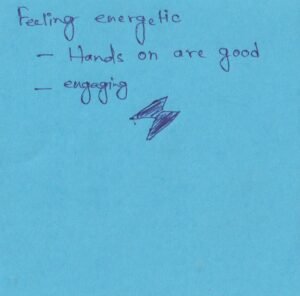 Feeling energetic
- Hands on are good
- engaging